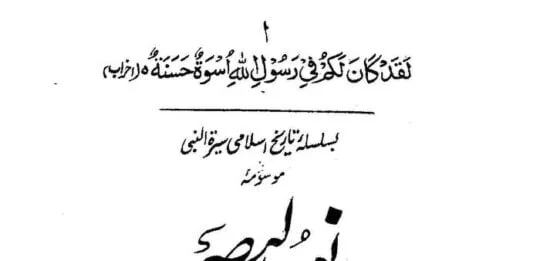 ۱
لَقَدْ كَانَ لَكُمْ فِيْ رَسُوْلِ اللهِ اُسْوَةٌ حَسَنَةٌ ۵ (احزاب)
بسلسلۂ تاریخ اسلامی سیرۃ النبی
موسومۂ